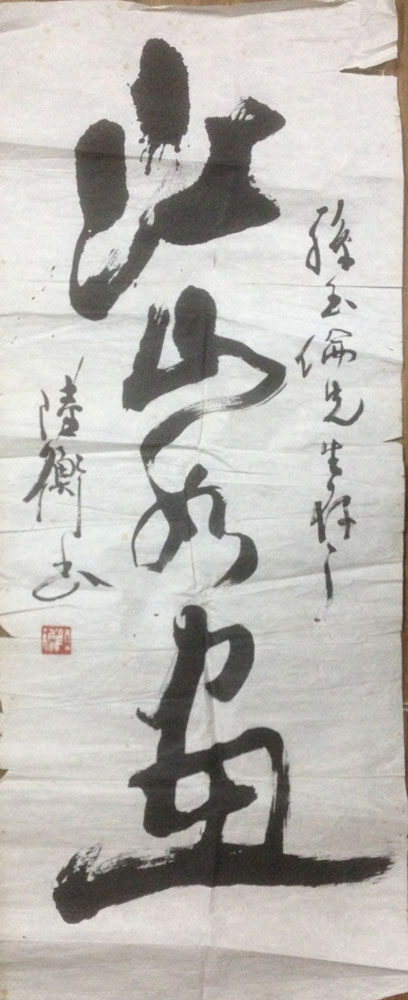 孫玉倫先生存之
江山如畫
陸衡书